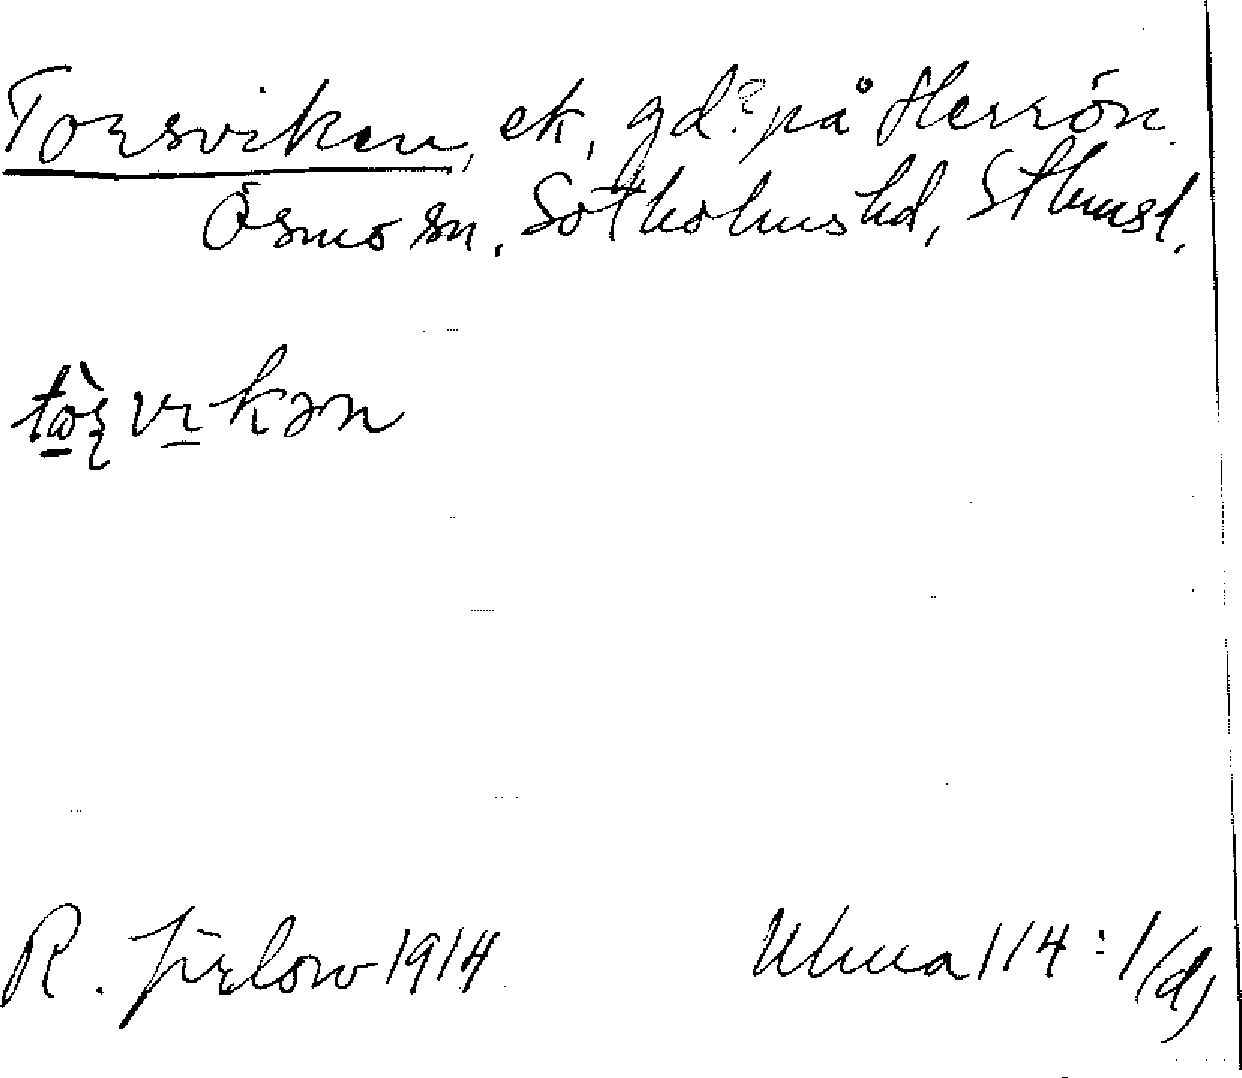 Torsviken, ek, gd? på Herrön.
Ösmo sn. Sotholms hd, Sthmsl.
vikən
R. Jirlow 1914
Ulma 114:1/d)